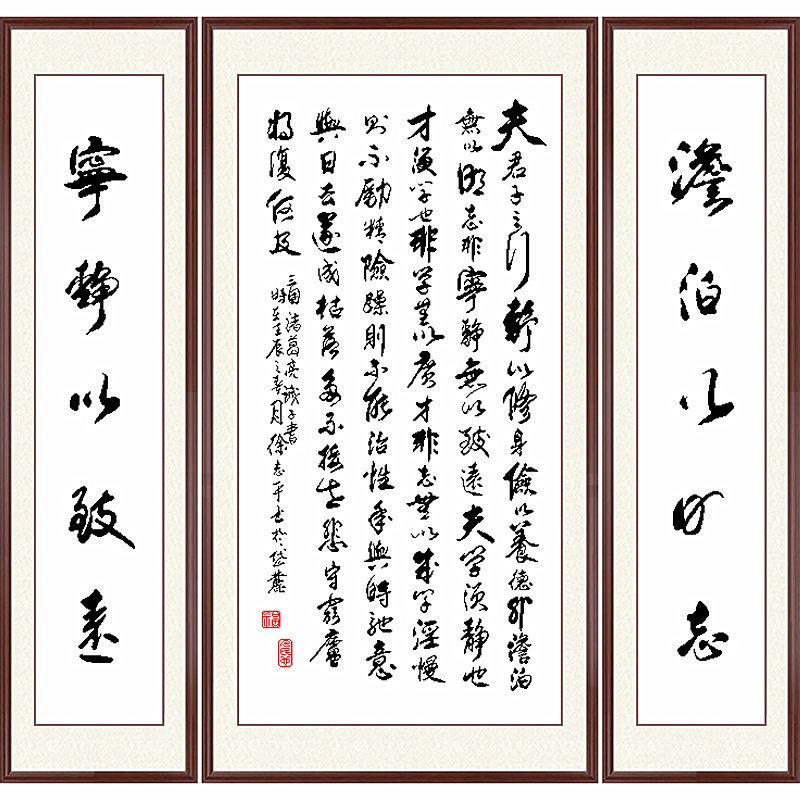 澹泊以明志
夫君子之行静以修身儉以養德非澹泊
無以明志非寧静無以致遠夫学須静也
才須学也非学無以廣才非志無以成学淫慢
則不勵精險躁則不能治性年與時馳意
與日去遂成枯落多不接世悲守窮廬
将復何及
三國諸葛亮诫子書
時在壬辰之春月徐志平书於岱麓
寧静以致遠